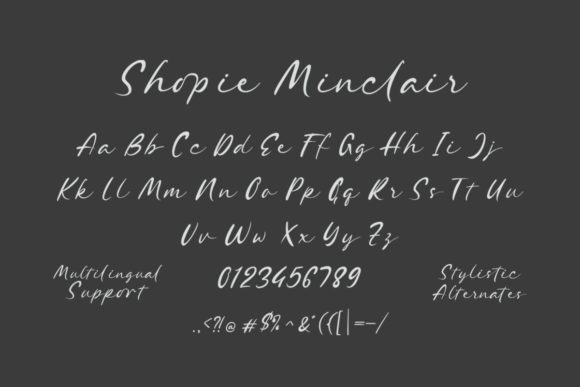 Shopie Minclair
Aa Bb Cc Dd Ee Ff Gg Hh Ii Jj
Kk Ll Mm Nn Oo Pp Qq Rr Ss Tt Uu
Vv Ww Xx Yy Zz
Multilingual
Support
0123456789
Stylistic
Alternates
.,<?!@#$%^&*({[|=-/